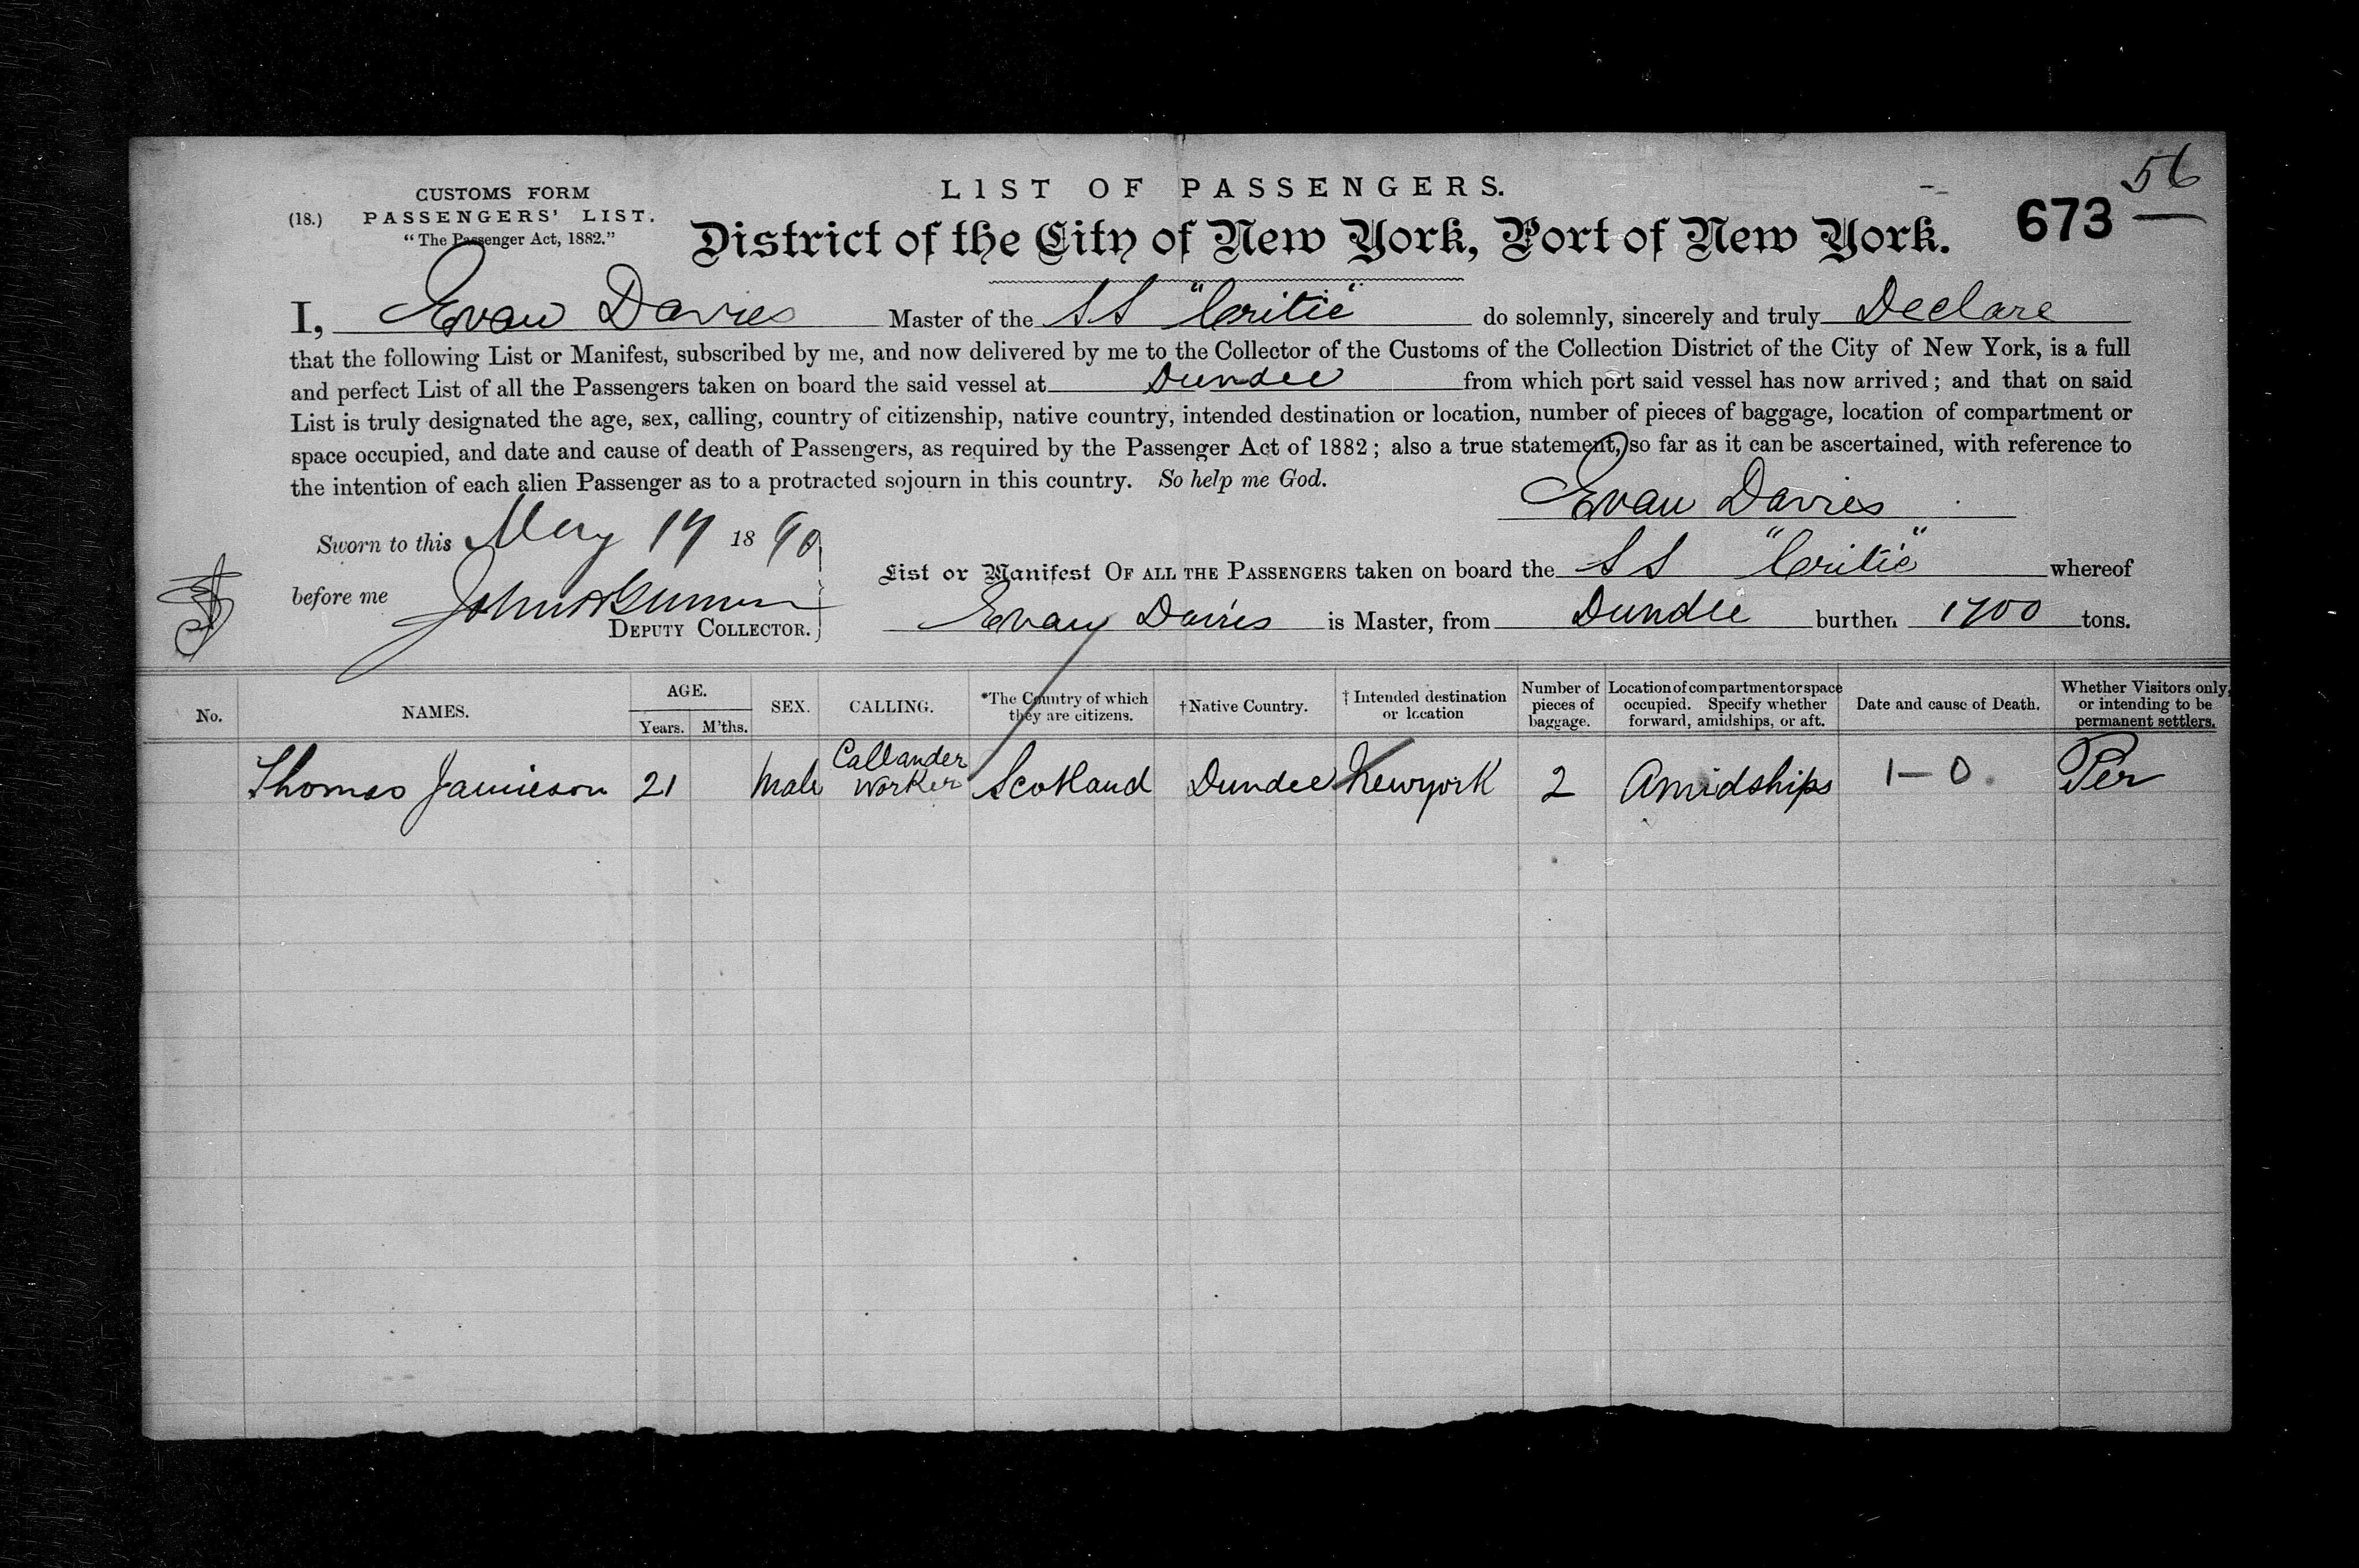 56
673
CUSTOMS FORM
(18.) PASSENGERS' LIST.
"The Passenger Act, 1882."
LIST OF PASSENGERS.
District of the City of New York, Port of New York.
I, Evan Davies Master of the SS "Critic" do solemnly, sincerely and truly Declare
that the following List or Manifest, subscribed by me, and now delivered by me to the Collector of the Customs of the Collection District of the City of New York, is a full
and perfect List of all the Passengers taken on board the said vessel at Dundee from which port said vessel has now arrived; and that on said
List is truly designated the age, sex, calling, country of citizenship, native country, intended destination or location, number of pieces of baggage, location of compartment or
space occupied, and date and cause of death of Passengers, as required by the Passenger Act of 1882; also a true statement, so far as it can be ascertained, with reference to
the intention of each alien Passenger as to a protracted sojourn in this country. So help me God.
Evan Davies
Sworn to this May 18 90
before me John
DEPUTY COLLECTOR.
List or Manifest OF ALL THE PASSENGERS taken on board the SS "Critic" whereof
Evan Davies is Master, from Dundee burthen 1700 tons.
No. NAMES. AGE. Years. M'ths. SEX. CALLING. *The Country of which they are citizens. †Native Country. †Intended destination or location Number of pieces of baggage. Location of compartment or space occupied. Specify whether forward, amidships, or aft. Date and cause of Death. Whether Visitors only, or intending to be permanent settlers.
Thomas Jamieson 21 Male Callander Worker Scotland Dundee Newyork 2 Amidships 1–0 Per